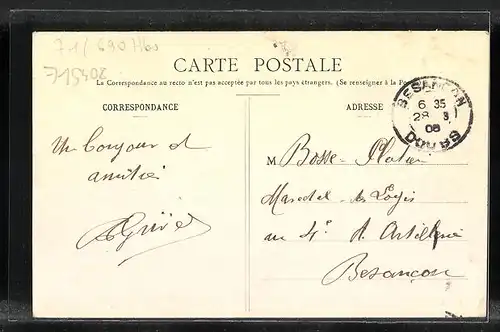 CARTE POSTALE
La Correspondance au recto n'est pas acceptée par tous les pays étrangers. (Se renseigner à la Poste
CORRESPONDANCE
ADRESSE
BESANCON
6 35
28 8
08
DOUBS
Un bonjour et
amitié
M Bosse-Platier
Marechal des Logis
au 4e d'Artillerie
Besançon